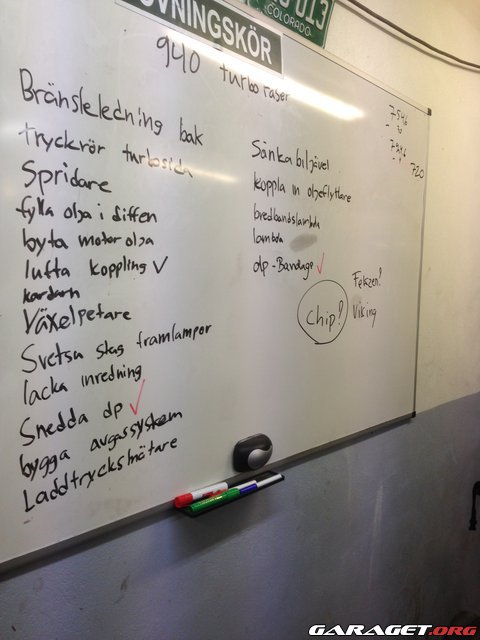 ÖVNINGSKÖR
COLORADO
940 turbo raser
Bränsleledning bak
tryckrör turbosida
Spridare
fylla olja i diffen
byta motor olja
lufta koppling ✓
kardarn
Växelpetare
Svetsa stag framlampor
lacka inredning
Snedda dp ✓
bygga avgassystem
Laddtrycksmätare
Sänka biljävel
koppla in oljefyllare
bredbandslambda
lambda
dp-Bandage ✓
Chip?
Viking
7546
720
GARAGET.ORG